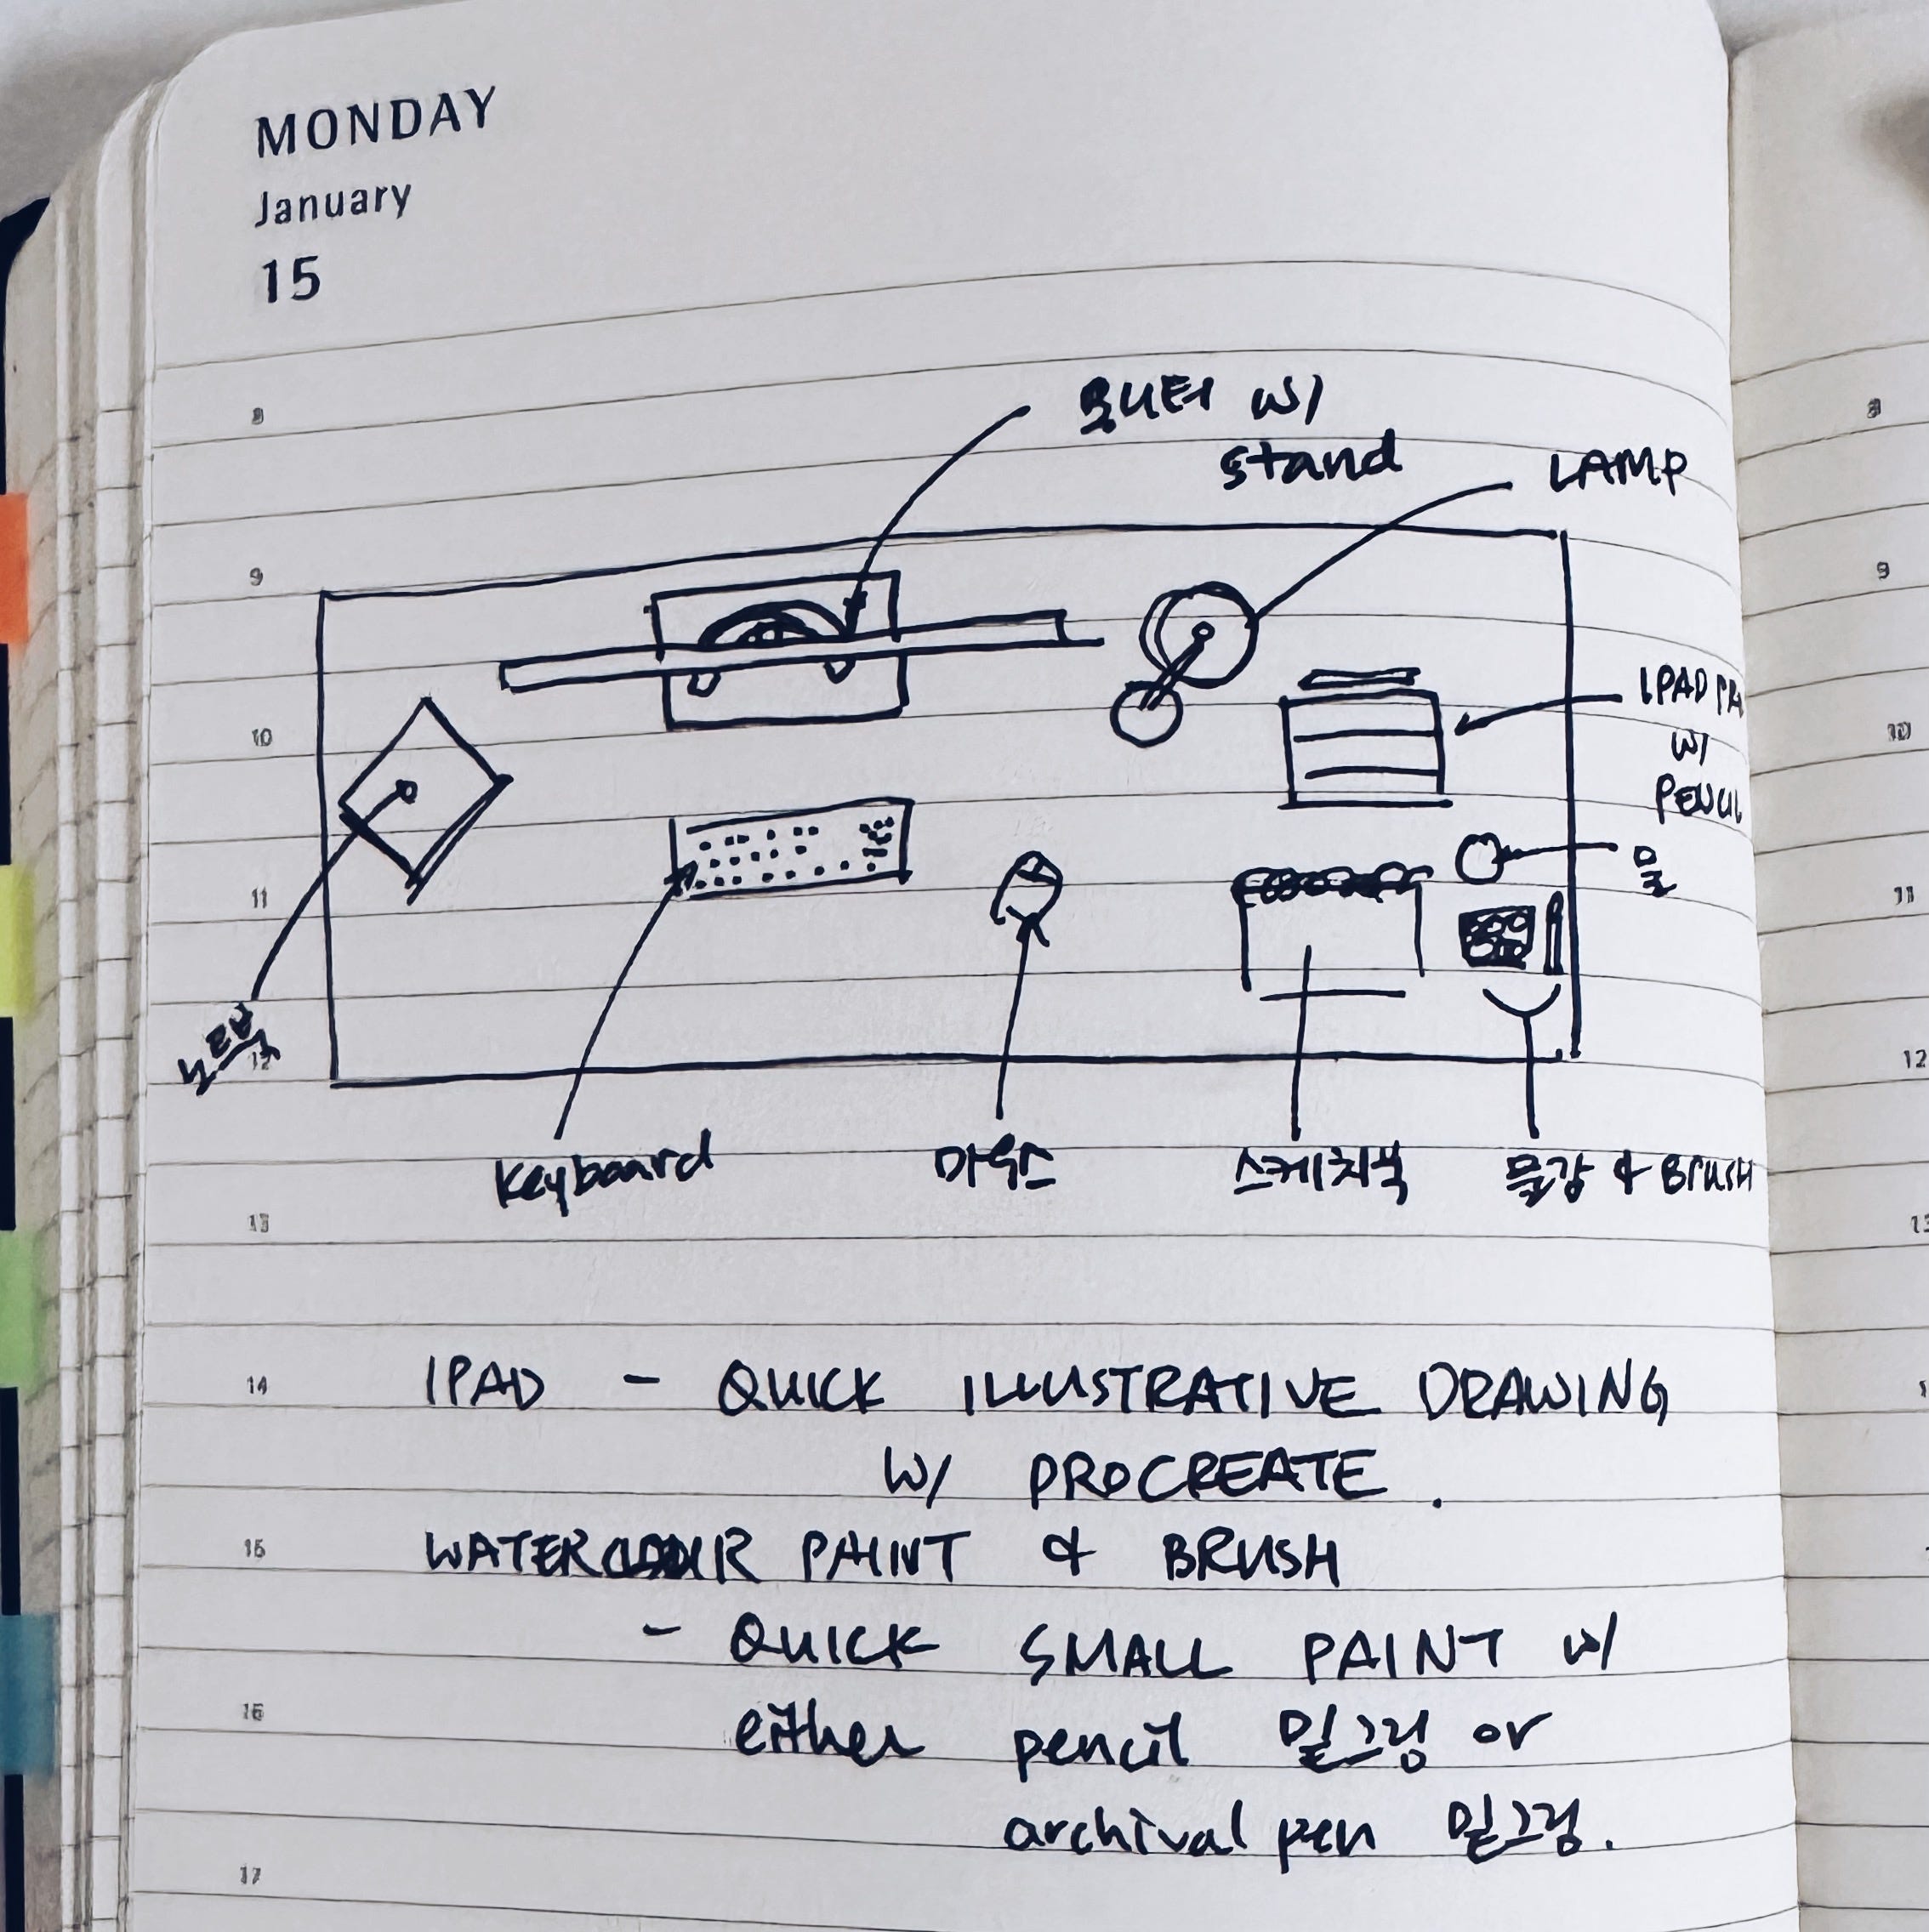 MONDAY
January
15
8
모니터 w/
stand
LAMP
9
IPAD
w/
PENCIL
10
물
11
12
keyboard
마우스
스케치북
물감 & BRUSH
13
14
IPAD - QUICK ILLUSTRATIVE DRAWING
W/ PROCREATE.
15
WATERCOLOUR PAINT & BRUSH
- QUICK SMALL PAINT w/
16
either pencil 밑그림 or
archival pen 밑그림.
17
8
9
10
11
12
13